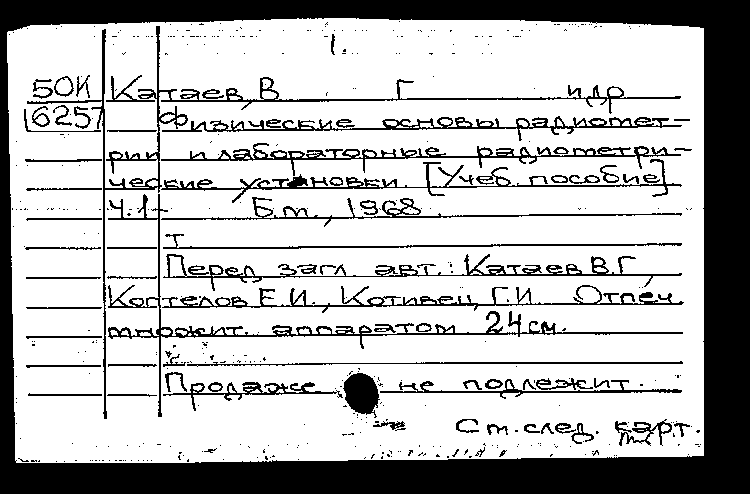 1.
50К Катаев, В Г и др
16257 Физические основы радиомет-
рии и лабораторные радиометри-
ческие установки. [Учеб. пособие]
Ч.1- Б.т., 1968.
т.
Перед загл. авт.: Катаев В.Г.,
Коптелов Е.И., Котивец, Г.И. Отпеч.
множит. аппаратом 24 см.
Продаже не подлежит.
Ст. след. карт.